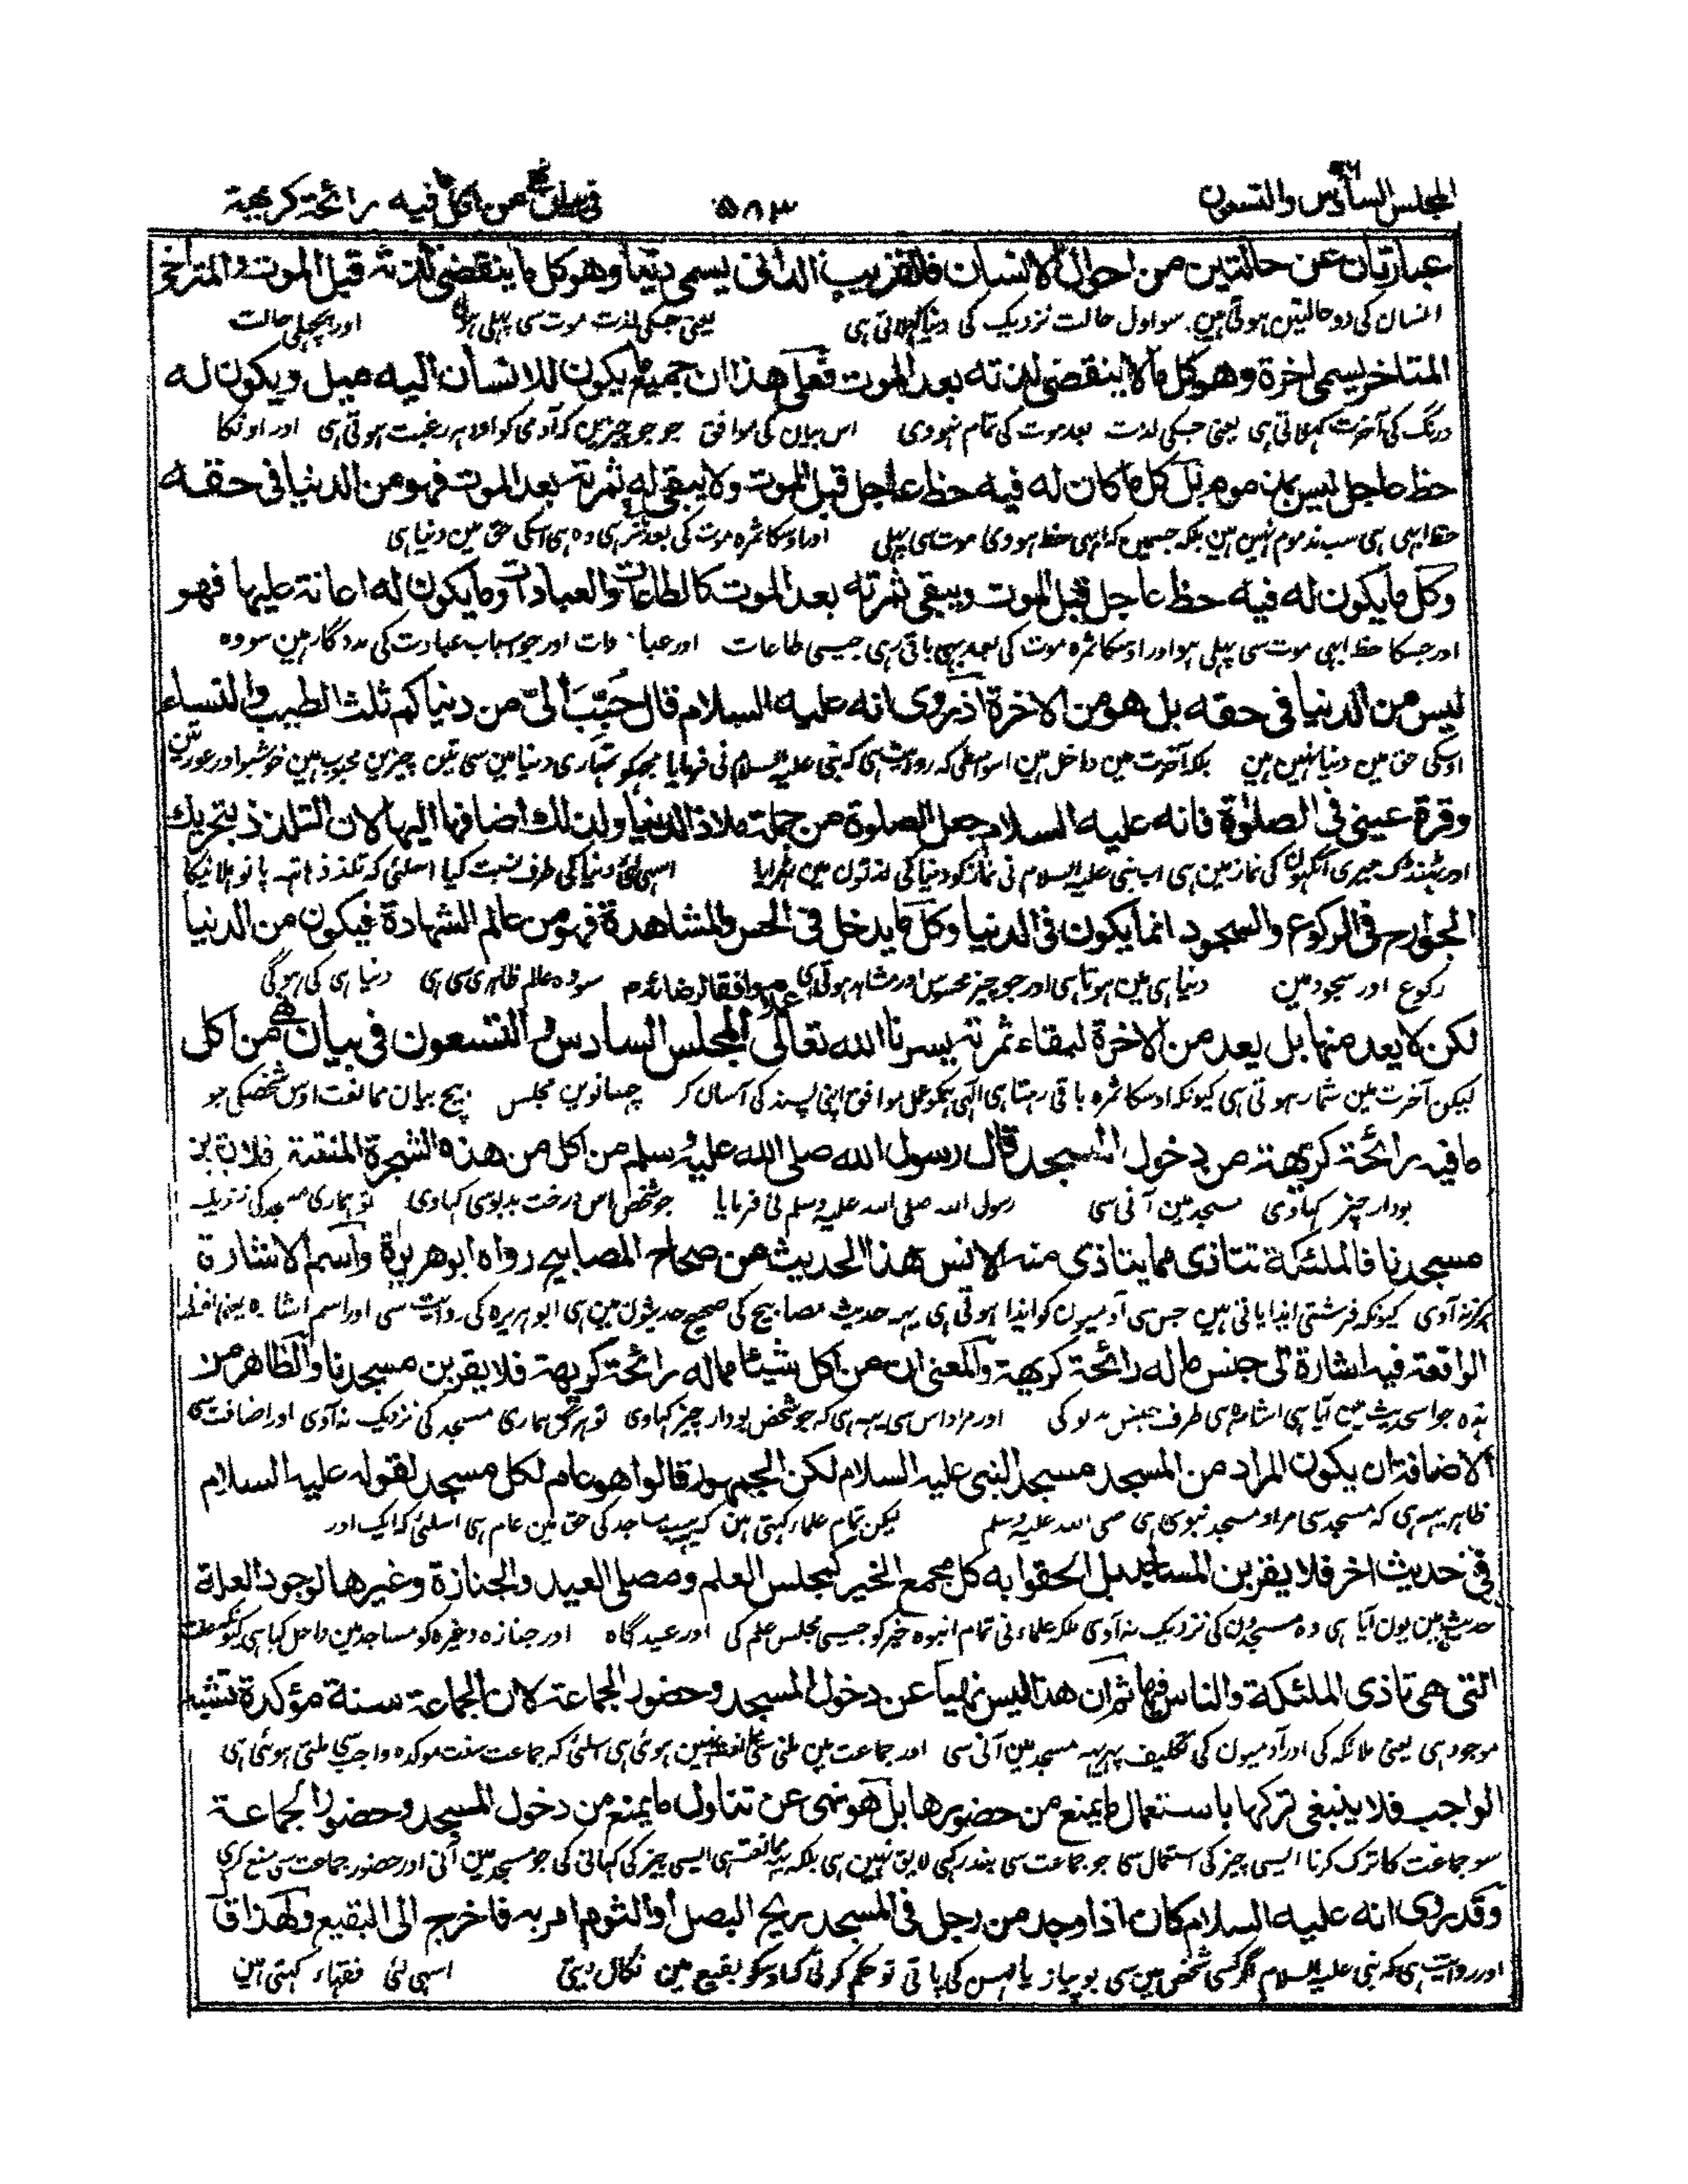 المجلس السادس والتسعون ٥٨٣ فی بیان نهی من اکل ما فیه رائحة کریهة
عبارتان عن حالتین من احوال الانسان فالقریب الدانی یسمی دنیا وهو کل ما ینقضی لذته قبل الموت والمتراخی
انسان کی دو حالتین ہوتی ہین سو اول حالت نزدیک کی دنیا کہلاتی ہی یعنی جسکی لذت موت سی پہلی ہو اور پچہلی حالت
المتاخر یسمی اخرة وهو کل ما لا ینقضی لذته بعد الموت فعلی هذا ان جمیع ما یکون للانسان الیه میل ویکون له
درنگ کی آخرت کہلاتی ہی یعنی جسکی لذت بعد موت کی تمام نہووی اس بیان کی موافق جو جو چیزین کہ آدمی کو اودہر رغبت ہوتی ہی اور اونکا
حظ عاجل لیس بمذموم بل کل ما کان له فیه حظ عاجل قبل الموت ولا یبقی له ثمرته بعد الموت فهو من الدنیا فی حقه
حظ ابہی ہی سب مذموم نہین ہین بلکہ جسمین کہ ابہی حظ ہووی موت سی پہلی اور اوسکا ثمرہ موت کی بعد نرہی وہ ہی اسکی حق مین دنیا ہی
وکل ما یکون له فیه حظ عاجل قبل الموت ویبقی ثمرته بعد الموت کالطاعات والعبادات وما یکون له اعانة علیها فهو
اور جسکا حظ ابہی موت سی پہلی ہو اور اوسکا ثمرہ موت کی بعد بہی باقی رہی جیسی طاعات اور عبادات اور جو اسباب عبادت کی مددگار ہین سو وہ
لیس من الدنیا فی حقه بل هو من الاخرة اذ روی انه علیه السلام قال حُبِّبَ الیّ من دنیاکم ثلث الطیب والنساء
اوسکی حق مین دنیا نہین ہین بلکہ آخرت مین داخل ہین اسواسطی کہ روایت ہی کہ نبی علیہ السلام نی فرمایا مجہکو تمہاری دنیا مین سی تین چیزین محبوب ہین خوشبو اور عورتین
وقرة عینی فی الصلوة فانه علیه السلام جعل الصلوة من جملة ملاذ الدنیا ولذلک اضافها الیها لان التلذذ بتحریک
اور ٹہنڈک میری آنکہون کی نماز مین ہی اب نبی علیہ السلام نی نماز کو دنیا کی لذتون مین ٹہرایا اسی لئی دنیا کی طرف نسبت کیا اسلئی کہ تلذذ ہاتہہ پانو ہلانیکا
الجوارح فی الرکوع والسجود انما یکون فی الدنیا وکل ما یدخل فی الحس والمشاهدة فهو من عالم الشهادة فیکون من الدنیا
رکوع اور سجود مین دنیا ہی مین ہوتا ہی اور جو چیز محسوس اور مشاہد ہوتی ہی سو وہ عالم ظاہری سی ہی دنیا ہی کی ہوگی
عملا موافقا لرضائه م
لکن لا یعد منها بل یعد من الاخرة لبقاء ثمرته یسرنا الله تعالی المجلس السادس والتسعون فی بیان نهی من اکل
لیکن آخرت مین شمار ہوتی ہی کیونکہ اوسکا ثمرہ باقی رہتا ہی الہی ہمکو عمل موافق اپنی پسند کی آسان کر چہیانوین مجلس بیچ بیان ممانعت اوس شخص کی جو
ما فیه رائحة کریهة من دخول المسجد قال رسول الله صلی الله علیه وسلم من اکل من هذه الشجرة المنتنة فلا یقربن
بودار چیز کہاوی مسجد مین آنی سی رسول اللہ صلی اللہ علیہ وسلم نی فرمایا جو شخص اس درخت بدبو سی کہاوی تو ہماری مسجد کی نزدیک
مسجدنا فالملئکة تتاذی مما یتاذی منه الانس هذا الحدیث من صحاح المصابیح رواه ابو هریرة واسم الاشارة
ہرگز نہ آوی کیونکہ فرشتی ایذا پاتی ہین جس سی آدمیون کو ایذا ہوتی ہی یہہ حدیث مصابیح کی صحیح حدیثون مین ہی ابو ہریرہ کی روایت سی اور اسم اشارہ یعنی لفظ
الواقعة فیه اشارة الی جنس ما له رائحة کریهة والمعنی ان من اکل شیئا مما له رائحة کریهة فلا یقربن مسجدنا والظاهر من
ہذہ جو اس حدیث مین آیا ہی اشارہ ہی طرف جنس بدبو کی اور مراد اس سی یہہ ہی کہ جو شخص بودار چیز کہاوی تو ہرگز ہماری مسجد کی نزدیک نہ آوی اور اضافت سی
الاضافة ان یکون المراد من المسجد مسجد النبی علیه السلام لکن الجمهور قالوا هو عام لکل مسجد لقوله علیه السلام
ظاہر یہہ ہی کہ مسجد سی مراد مسجد نبوی ہی صلی اللہ علیہ وسلم لیکن تمام علما کہتی ہین کہ یہہ مساجد کی حق مین عام ہی اسلئی کہ ایک اور
فی حدیث اخر فلا یقربن المساجد بل الحقوا به کل مجمع الخیر کمجلس العلم ومصلی العید والجنازة وغیرها لوجود العلة
حدیث مین یون آیا ہی وہ مسجدون کی نزدیک نہ آوی بلکہ علماء نی تمام انبوہ خیر کو جیسی مجلس علم کی اور عیدگاہ اور جنازہ وغیرہ کو مساجد مین داخل کیا ہی کیونکہ علت
التی هی تاذی الملئکة والناس فیها ثم ان هذا لیس نهیا عن دخول المسجد وحضور الجماعة لان الجماعة سنة مؤکدة تشبه
موجود ہی یعنی ملائکہ کی اور آدمیون کی تکلیف پہر یہہ مسجد مین آنی سی اور جماعت مین ملنی سی ممانعت نہین ہوئی ہی اسلئی کہ جماعت سنت موکدہ واجب سی ملتی ہوئی ہی
الواجب فلا ینبغی ترکها باستعمال ما یمنع من حضورها بل هو نهی عن تناول ما یمنع من دخول المسجد وحضور الجماعة
سو جماعت کا ترک کرنا ایسی چیز کی استعمال سی جو جماعت سی بند رکہی لایق نہین ہی بلکہ یہہ ممانعت ہی ایسی چیز کی کہانی کی جو مسجد مین آنی اور حضور جماعت سی منع کری
وقد روی انه علیه السلام کان اذا وجد من رجل فی المسجد ریح البصل او الثوم امر به فاخرج الی البقیع ولهذا قا
اور روایت ہی کہ نبی علیہ السلام اگر کسی شخص مین سی بو پیاز یا لہسن کی پاتی تو حکم کرتی کہ اوسکو بقیع مین نکال دیتی اسی لئی فقہاء کہتی ہین